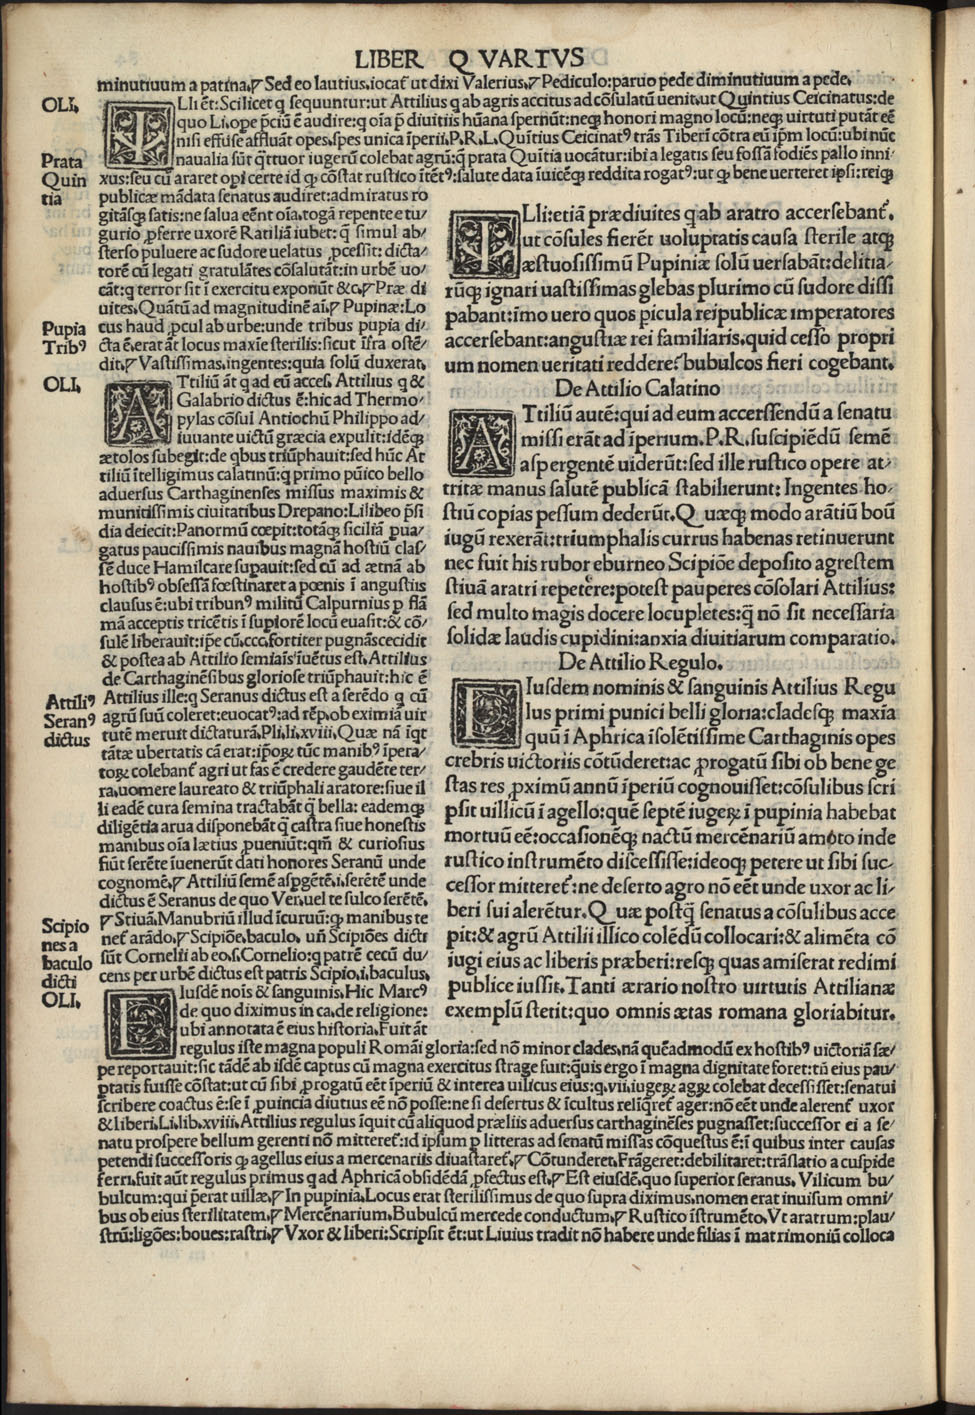 LIBER QVARTVS
minutiuum a patina.⁋ Sed eo lautius.iocat᷑ ut dixi Valerius.⁋ Pediculo:paruo pede diminutiuum a pede.
OLI.
ILLi ēt:Scilicet q sequuntur:ut Attilius q ab agris accitus ad cōsulatū uenit.ut Quintius Ceicinatus:de
quo Li.ope p̄ciū ē audire:q oīa p̄ diuitiis hūana spernūt:neqȝ honori magno locū:neqȝ uirtuti putāt eē
nisi effuse affluāt opes.spes unica īperii.P.R.L.Quītius Ceicinatꝰ trās Tiberī cōtra eū ip̄m locū:ubi nūc
naualia sūt q̄ttuor iugerū colebat agrū:q̄ prata Quītia uocātur:ibi a legatis seu fossā fodiēs pallo inni-
Prata
Quin
tia
xus:seu cū araret opi certe id qȝ cōstat rustico ītētꝰ:salute data īuicēqȝ reddita rogatꝰ:ut qȝ bene uerteret ipsi:reiqȝ
publicæ mādata senatus audiret:admiratus ro
gitāsqȝ satis:ne salua eēnt oīa.togā repente e tu/
gurio ꝓferre uxorē Ratiliā iubet:q̄ simul ab/
sterso puluere ac sudore uelatus ꝓcessit: dicta/
torē cū legati gratulātes cōsalutāt:in urbē uo/
cāt:q terror sit ī exercitu exponūt &c.⁋ Præ di
uites.Quātū ad magnitudinē ai.⁋ Pupinæ:Lo
Pupia
Tribꝰ
cus haud ꝓcul ab urbe:unde tribus pupia di/
cta ē.erat āt locus maxīe sterilis:sicut īfra ostē/
dit.⁋ Vastissimas.ingentes:quia solū duxerat.
OLI.
ATtiliū āt q ad eū acces. Attilius q &
Galabrio dictus ē:hic ad Thermo/
pylas cōsul Antiochū Philippo ad/
iuuante uictū græcia expulit:idēqȝ
ætolos subegit:de qbus triūphauit:sed hūc At
tiliū ītelligimus calatinū:q primo pūico bello
aduersus Carthaginenses missus maximis &
munitissimis ciuitatibus Drepano:Lilibeo p̄si
dia deiecit:Panormū cœpit:totāqȝ siciliā pua/
gatus paucissimis nauibus magnā hostiū clas/
sē duce Hamilcare supauit:sed cū ad ætnā ab
hostibꝰ obsessā fœstinaret a pœnis ī angustiis
clausus ē:ubi tribunꝰ militū Calpurnius p flā
mā acceptis tricētis ī supiorē locū euasit:& cō/
sulē liberauit:ip̄e cū.ccc.fortiter pugnās cecidit
& postea ab Attilio semiaīs īuētus est.Attilius
de Carthaginēsibus gloriose triūphauit:hic ē
Attiliꝰ
Seranꝰ
dictus
Attilius ille:q Seranus dictus est a serēdo q cū
agrū suū coleret:euocatꝰ:ad rēp.ob eximiā uir
tutē meruit dictaturā.Pli.li.xviii.Quæ nā īqt
tātæ ubertatis cā erat:ip̄oꝝ tūc manibꝰ īpera/
toꝝ colebant᷑ agri ut fas ē credere gaudēte ter/
ra.uomere laureato & triūphali aratore:siue il
li eadē cura semina tractabāt q̄ bella: eademqȝ
diligētia arua disponebāt q̄ castra siue honestis
manibus oīa lætius ꝓueniūt:qm̄ & curiosius
fiūt serēte īuenerūt dati honores Seranū unde
cognomē.⁋ Attiliū semē aspgētē.i.serētē unde
dictus ē Seranus de quo Ver.uel te sulco serētē.
Scipio
nes a
baculo
dicti
⁋ Stiuā.Manubriū illud īcuruū:qȝ manibus te
net᷑ arādo.⁋ Scipiōe.baculo. un̄ Scipiōes dicti
sūt Cornelii ab eo.s.Cornelio:q patrē cecū du/
cens per urbē dictus est patris Scipio.i.baculus.
OLI.
EIusdē nois & sanguinis.Hic Marcꝰ
de quo diximus in ca.de religione:
ubi annotata ē eius historia.Fuit āt
ILli:etiā prædiuites q ab aratro accersebant᷑.
ut cōsules fierēt uoluptatis causa sterile atqȝ
æstuosissimū Pupiniæ solū uersabāt:delitia/
rūqȝ ignari uastissimas glebas plurimo cū sudore dissi
pabant:imo uero quos picula reipublicæ imperatores
accersebant:angustiæ rei familiaris.quid cesso propri
um nomen ueritati reddere?bubulcos fieri cogebant.
De Attilio Calatino
ATtiliū autē:qui ad eum accerssendū a senatu
missi erāt ad īperium.P.R.suscipiēdū semē
aspergentē uiderūt:sed ille rustico opere at/
tritæ manus salutē publicā stabilierunt: Ingentes ho/
stiū copias pessum dederūt.Quæqȝ modo arātiū boū
iugū rexerāt:triumphalis currus habenas retinuerunt
nec fuit his rubor eburneo Scipiōe deposito agrestem
stiuā aratri repetere:potest pauperes cōsolari Attilius:
sed multo magis docere locupletes:q̄ nō sit necessaria
solidæ laudis cupidini:anxia diuitiarum comparatio.
De Attilio Regulo.
EIusdem nominis & sanguinis Attilius Regu
lus primi punici belli gloria:cladesqȝ maxīa
quū ī Aphrica īsolētissime Carthaginis opes
crebris uictoriis cōtūderet:ac ꝓrogatū sibi ob bene ge
stas res ꝓximū annū īperiū cognouisset:cōsulibus scri
psit uillicū ī agello:quē septē iugeꝝ ī pupinia habebat
mortuū eē:occasionēqȝ nactū mercēnariū amoto inde
rustico instrumēto discessisse:ideoqȝ petere ut sibi suc/
cessor mitteret᷑:ne deserto agro nō eēt unde uxor ac li/
beri sui alerētur.Quæ postq̄ senatus a cōsulibus acce
pit:& agrū Attilii illico colēdū collocari:& alimēta cō
iugi eius ac liberis præberi:resqȝ quas amiserat redimi
publice iussit.Tanti ærario nostro uirtutis Attilianæ
exemplū stetit:quo omnis ætas romana gloriabitur.
regulus iste magna populi Romāi gloria:sed nō minor clades.nā quēadmodū ex hostibꝰ uictoriā sæ/
pe reportauit:sic tādē ab iisdē captus cū magna exercitus strage fuit:q̄uis ergo ī magna dignitate foret:tn̄ eius pau/
ptatis fuisse cōstat:ut cū sibi ꝓrogatū eēt īperiū & interea uilicus eius:q.vii.iugeꝝ agꝝ colebat decessisset:senatui
scribere coactus ē:se ī ꝓuincia diutius eē nō posse:ne si desertus & īcultus relīq̄ret᷑ ager:nō eēt unde alerent᷑ uxor
& liberi.Li.lib.xviii.Attilius regulus īquit cū aliquod præliis aduersus carthaginēses pugnasset:successor ei a se/
natu prospere bellum gerenti nō mitteret᷑:id ipsum p litteras ad senatū missas cōquestus ē:ī quibus inter causas
petendi successoris qȝ agellus eius a mercenariis diuastaret᷑.⁋ Cōtunderet.Frāgeret:debilitaret:trāslatio a cuspide
ferri.fuit aūt regulus primus q ad Aphricā obsidēdā ꝓfectus est.⁋ Est eiusdē.quo superior seranus. Vilicum bu/
bulcum:qui p̄erat uillæ.⁋ In pupinia.Locus erat sterilissimus de quo supra diximus.nomen erat inuisum omni/
bus ob eius sterilitatem.⁋ Mercēnarium.Bubulcū mercede conductum.⁋ Rustico īstrumēto.Vt aratrum:plau/
strū:ligōes:boues:rastri.⁋ Vxor & liberi:Scripsit ēt:ut Liuius tradit nō habere unde filias ī matrimoniū colloca